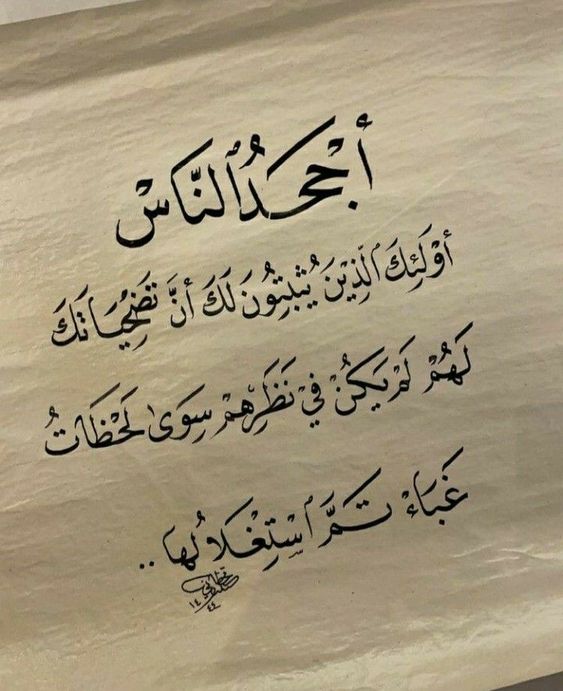 أَجْحَدُ ٱلنَّاسْ
أوْلَئِكَ ٱلَّذِيْنَ يُثْبِتُونَ لَكَ أنَّ تَضْحِيَاتَكَ
لَهُمْ لَمْ يَكُنْ فِيْ نَظَرِهِمْ سِوَىٰ لَحْظَاتُ
غَبَاءْ تَمَّ ٱسْتِغْلَالُهَا ..
١٤
٤٤